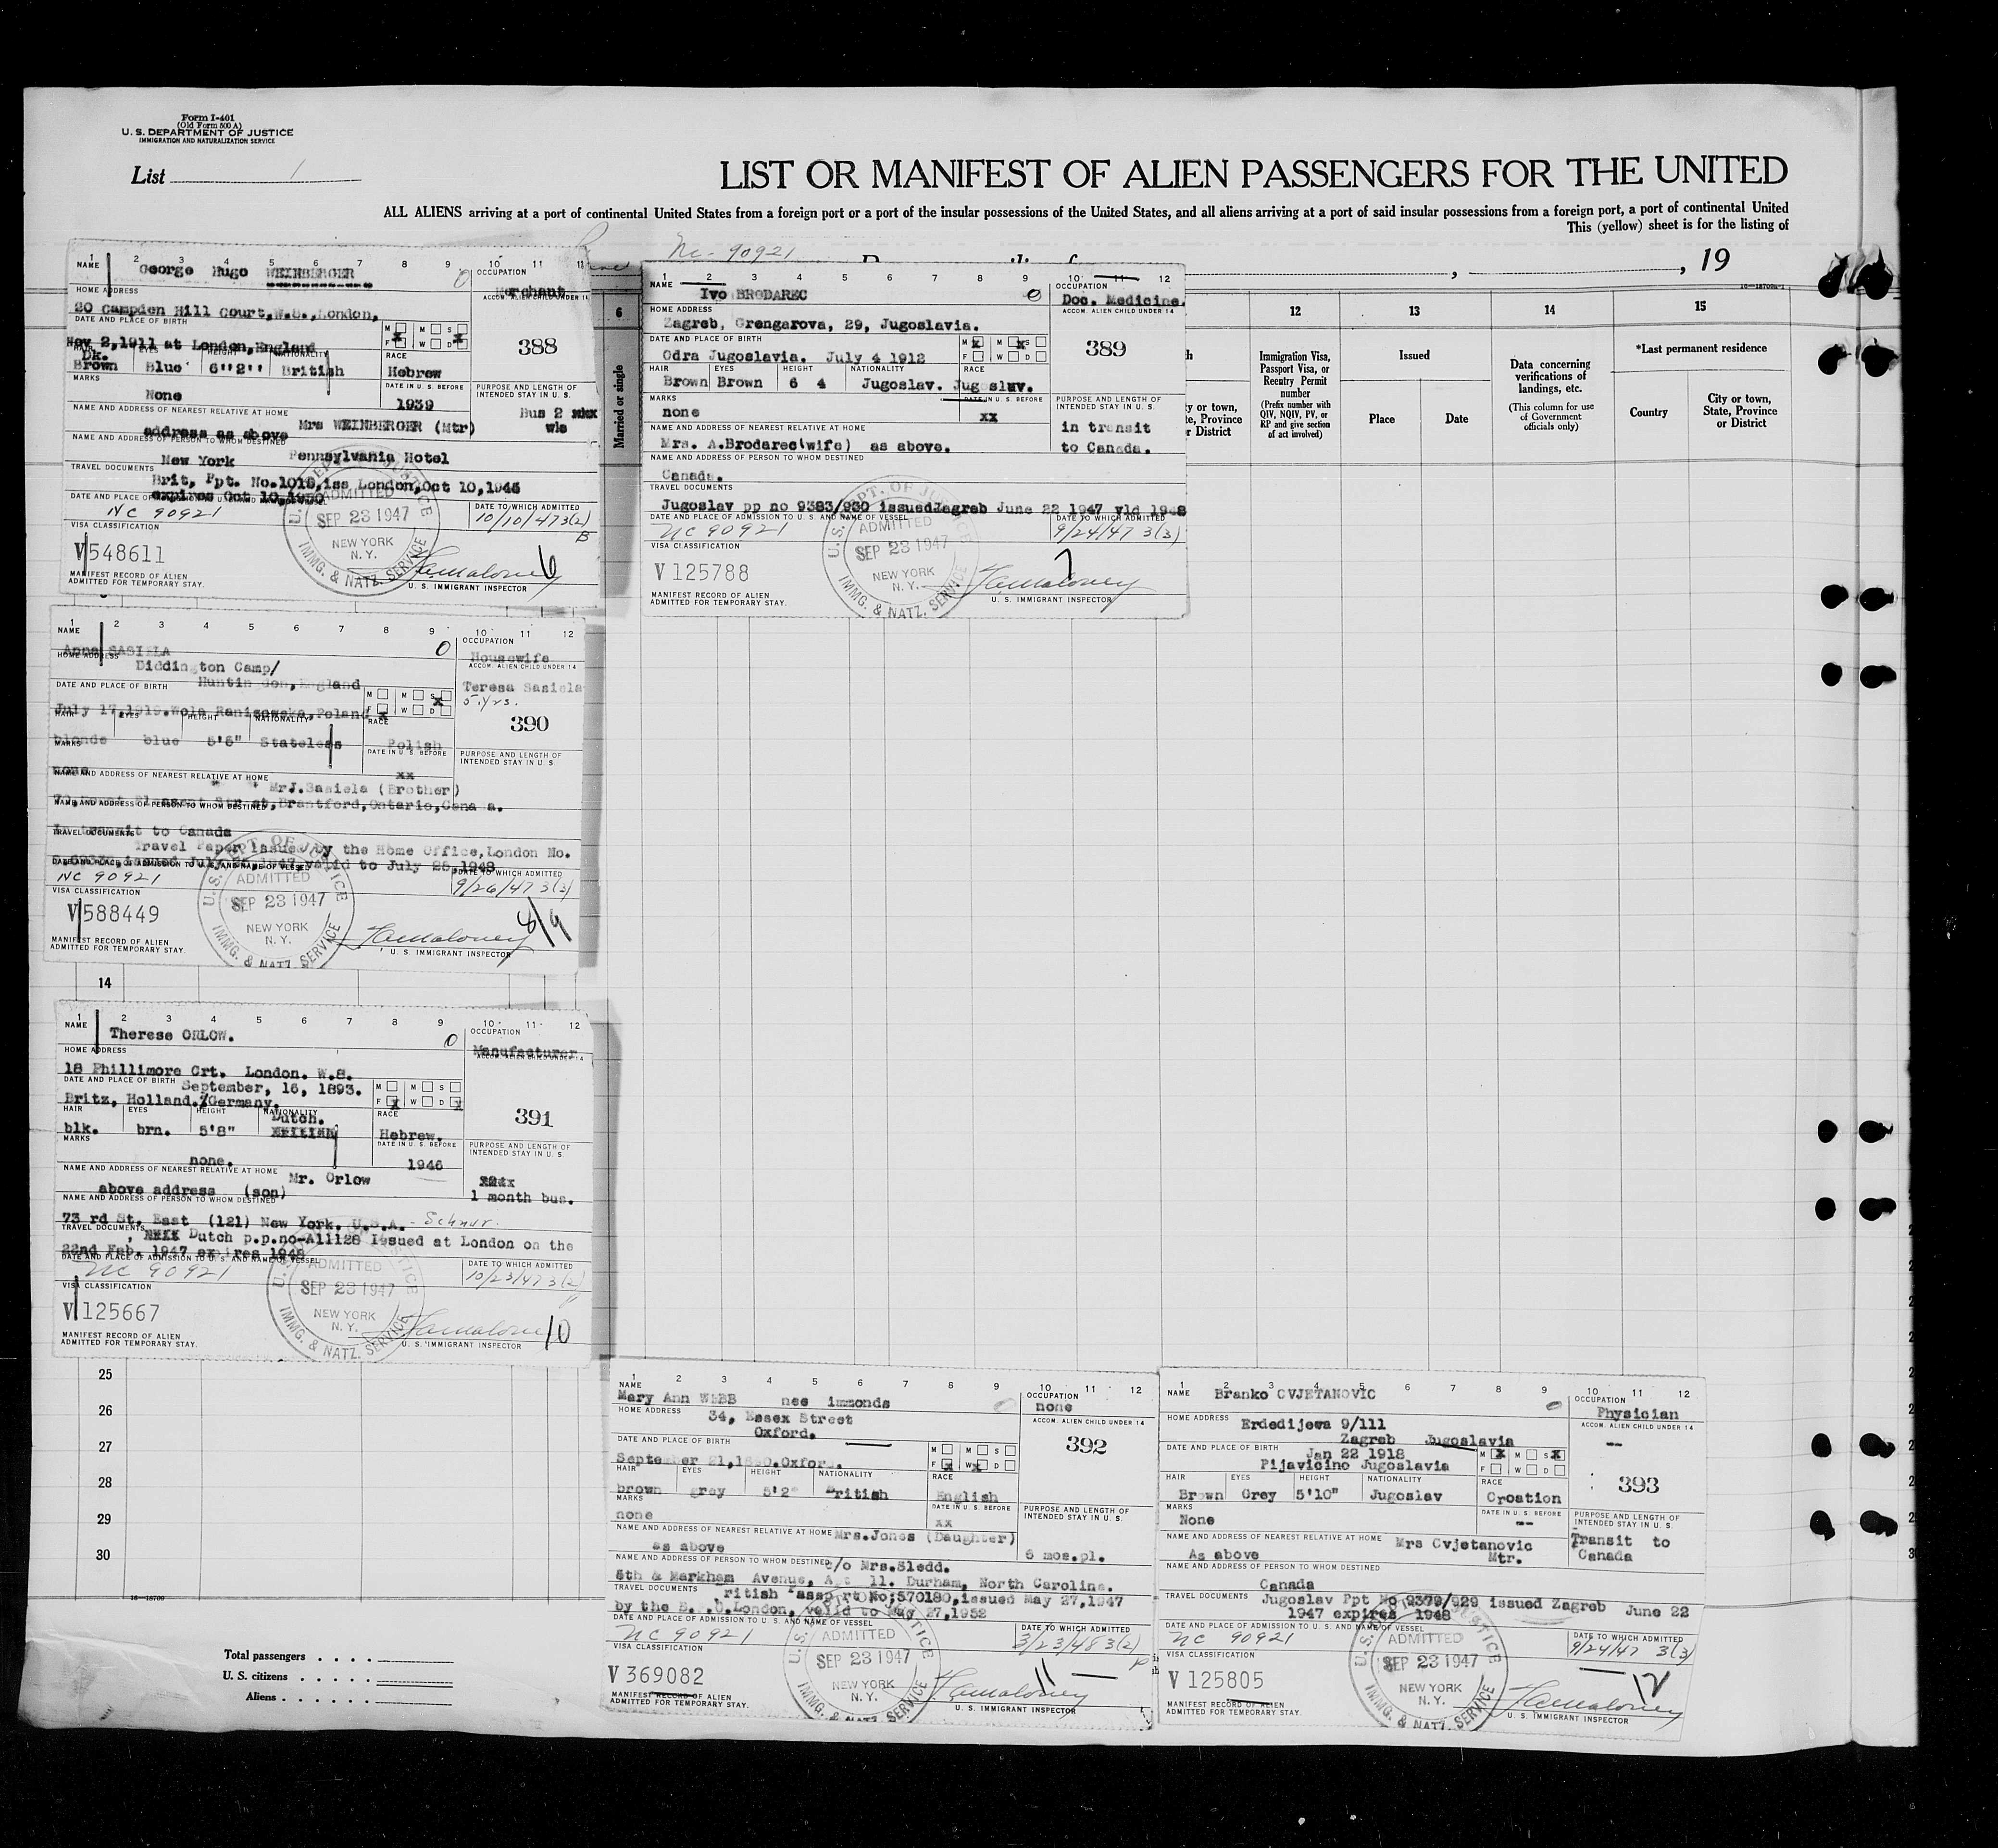 Form I-401
(Old Form 500 A)
U. S. DEPARTMENT OF JUSTICE
IMMIGRATION AND NATURALIZATION SERVICE
List 1
LIST OR MANIFEST OF ALIEN PASSENGERS FOR THE UNITED
ALL ALIENS arriving at a port of continental United States from a foreign port or a port of the insular possessions of the United States, and all aliens arriving at a port of said insular possessions from a foreign port, a port of continental United
This (yellow) sheet is for the listing of
NC-90921
, , 19
1 2 3 4 5 6 7 8 9 10 11
NAME George Hugo WEINBERGER 0
OCCUPATION
Merchant
ACCOM. ALIEN CHILD UNDER 14
HOME ADDRESS
20 Campden Hill Court,W.8.,London,
DATE AND PLACE OF BIRTH
Nov 2,1911 at London,England
M M S
F W D
388
HAIR EYES HEIGHT NATIONALITY RACE
Dk.
Brown Blue 6'2'' British Hebrew
MARKS
None
DATE IN U. S. BEFORE
1939
PURPOSE AND LENGTH OF
INTENDED STAY IN U. S.
Bus 2
wks
NAME AND ADDRESS OF NEAREST RELATIVE AT HOME
address as above Mrs WEINBERGER (Mtr)
NAME AND ADDRESS OF PERSON TO WHOM DESTINED
New York Pennsylvania Hotel
TRAVEL DOCUMENTS
Brit, Ppt. No.1018,iss London,Oct 10,1945
expires Oct 10,1950
DATE AND PLACE OF ADMISSION TO U. S. AND NAME OF VESSEL
NC 90921
DATE TO WHICH ADMITTED
10/10/47 3(2)
B
VISA CLASSIFICATION
V 548611
U. S. DEPT. OF JUSTICE
ADMITTED
SEP 23 1947
NEW YORK
N. Y.
IMMG. & NATZ. SERVICE
6
MANIFEST RECORD OF ALIEN
ADMITTED FOR TEMPORARY STAY.
U. S. IMMIGRANT INSPECTOR
1 2 3 4 5 6 7 8 9 10 11 12
NAME Ivo BRODAREC 0
OCCUPATION
Doc. Medicine.
ACCOM. ALIEN CHILD UNDER 14
HOME ADDRESS
Zagreb, Grengarova, 29, Jugoslavia.
DATE AND PLACE OF BIRTH
Odra Jugoslavia. July 4 1912
M M S
F W D
389
HAIR EYES HEIGHT NATIONALITY RACE
Brown Brown 6 4 Jugoslav. Jugoslav.
MARKS
none
DATE IN U. S. BEFORE
xx
PURPOSE AND LENGTH OF
INTENDED STAY IN U. S.
in transit
to Canada.
NAME AND ADDRESS OF NEAREST RELATIVE AT HOME
Mrs. A.Brodarec(wife) as above.
NAME AND ADDRESS OF PERSON TO WHOM DESTINED
Canada.
TRAVEL DOCUMENTS
Jugoslav pp no 9383/930 issuedZagreb June 22 1947 vld 1948
DATE AND PLACE OF ADMISSION TO U. S. AND NAME OF VESSEL
NC 90921
DATE TO WHICH ADMITTED
9/24/47 3(3)
VISA CLASSIFICATION
V 125788
ADMITTED
SEP 23 1947
NEW YORK
N. Y.
IMMG. & NATZ. SERVICE
7
MANIFEST RECORD OF ALIEN
ADMITTED FOR TEMPORARY STAY.
U. S. IMMIGRANT INSPECTOR
6
Married or single
12
Immigration Visa,
Passport Visa, or
Reentry Permit
number
(Prefix number with
QIV, NQIV, PV, or
RP and give section
of act involved)
13
Issued
Place Date
14
Data concerning
verifications of
landings, etc.
(This column for use
of Government
officials only)
15
*Last permanent residence
Country
City or town,
State, Province
or District
1 2 3 4 5 6 7 8 9 10 11 12
NAME
Anna SASIELA 0
OCCUPATION
Housewife
ACCOM. ALIEN CHILD UNDER 14
Teresa Sasiela
5 yrs.
HOME ADDRESS
Diddington Camp/
Huntingdon,England
DATE AND PLACE OF BIRTH
July 17,1919,Wola Ranizowska,Poland
M M S
F W D
390
HAIR EYES HEIGHT NATIONALITY RACE
blonde blue 5'6" Stateless Polish
MARKS
none
DATE IN U. S. BEFORE
xx
PURPOSE AND LENGTH OF
INTENDED STAY IN U. S.
NAME AND ADDRESS OF NEAREST RELATIVE AT HOME
MrJ.Sasiela (Brother)
Brantford,Ontario,Canada.
NAME AND ADDRESS OF PERSON TO WHOM DESTINED
In transit to Canada
TRAVEL DOCUMENTS
Travel Paper issued by the Home Office,London No.
issued July 1947 valid to July 25,1948
DATE AND PLACE OF ADMISSION TO U. S. AND NAME OF VESSEL
NC 90921
DATE TO WHICH ADMITTED
9/26/47 3(3)
VISA CLASSIFICATION
V 588449
ADMITTED
SEP 23 1947
NEW YORK
N. Y.
IMMG. & NATZ. SERVICE
8/9
MANIFEST RECORD OF ALIEN
ADMITTED FOR TEMPORARY STAY.
U. S. IMMIGRANT INSPECTOR
14
1 2 3 4 5 6 7 8 9 10 11 12
NAME Therese ORLOW. 0
OCCUPATION
Manufacturer
ACCOM. ALIEN CHILD UNDER 14
HOME ADDRESS
18 Phillimore Crt. London. W.8.
DATE AND PLACE OF BIRTH September, 16, 1893.
Britz, Holland./Germany.
M M S
F W D
391
HAIR EYES HEIGHT NATIONALITY RACE
Dutch.
blk. brn. 5'8" Hebrew.
MARKS
none.
DATE IN U. S. BEFORE
1946
PURPOSE AND LENGTH OF
INTENDED STAY IN U. S.
1 month bus.
NAME AND ADDRESS OF NEAREST RELATIVE AT HOME Mr. Orlow
above address (son)
NAME AND ADDRESS OF PERSON TO WHOM DESTINED
73 rd St. East (121) New York. U.S.A. - Schnur.
TRAVEL DOCUMENTS
Dutch p.p.no-A11128 Issued at London on the
22nd Feb. 1947 expires 1948
DATE AND PLACE OF ADMISSION TO U. S. AND NAME OF VESSEL
NC 90921
DATE TO WHICH ADMITTED
10/23/47 3(2)
VISA CLASSIFICATION
V 125667
ADMITTED
SEP 23 1947
NEW YORK
N. Y.
IMMG. & NATZ. SERVICE
10
MANIFEST RECORD OF ALIEN
ADMITTED FOR TEMPORARY STAY.
U. S. IMMIGRANT INSPECTOR
25
26
27
28
29
30
16-18709
Total passengers
U. S. citizens
Aliens
1 2 3 4 5 6 7 8 9 10 11 12
NAME
Mary Ann WEBB nee immonds
OCCUPATION
none
ACCOM. ALIEN CHILD UNDER 14
HOME ADDRESS
34, Essex Street
Oxford.
DATE AND PLACE OF BIRTH
September 21,
M M S
F W D
392
HAIR EYES HEIGHT NATIONALITY RACE
brown grey 5'2" British English
MARKS
none
DATE IN U. S. BEFORE
xx
PURPOSE AND LENGTH OF
INTENDED STAY IN U. S.
6 mos.pl.
NAME AND ADDRESS OF NEAREST RELATIVE AT HOME Mrs.Jones (Daughter)
as above
NAME AND ADDRESS OF PERSON TO WHOM DESTINED c/o Mrs.Sledd.
5th & Markham Avenue, Apt 11. Durham, North Carolina.
TRAVEL DOCUMENTS British Passport No;570180,issued May 27,1947
by the London, valid to May 27,1952
DATE AND PLACE OF ADMISSION TO U. S. AND NAME OF VESSEL
NC 90921
DATE TO WHICH ADMITTED
3/23/48 3(2)
P
VISA CLASSIFICATION
V 369082
ADMITTED
SEP 23 1947
NEW YORK
N. Y.
IMMG. & NATZ. SERVICE
11
MANIFEST RECORD OF ALIEN
ADMITTED FOR TEMPORARY STAY.
U. S. IMMIGRANT INSPECTOR
1 2 3 4 5 6 7 8 9 10 11 12
NAME Branko CVJETANOVIC
OCCUPATION
Physician
ACCOM. ALIEN CHILD UNDER 14
--
HOME ADDRESS
Erdedijewa 9/111
Zagreb Jugoslavia
DATE AND PLACE OF BIRTH Jan 22 1918
Pijavicino Jugoslavia
M M S
F W D
393
HAIR EYES HEIGHT NATIONALITY RACE
Brown Grey 5'10" Jugoslav Croation
MARKS
None
DATE IN U. S. BEFORE
--
PURPOSE AND LENGTH OF
INTENDED STAY IN U. S.
Transit to
Canada
NAME AND ADDRESS OF NEAREST RELATIVE AT HOME Mrs Cvjetanovic
As above Mtr.
NAME AND ADDRESS OF PERSON TO WHOM DESTINED
Canada
TRAVEL DOCUMENTS Jugoslav Ppt No 9379/929 issued Zagreb June 22
1947 expires 1948
DATE AND PLACE OF ADMISSION TO U. S. AND NAME OF VESSEL
NC 90921
DATE TO WHICH ADMITTED
9/24/47 3(3)
VISA CLASSIFICATION
V 125805
ADMITTED
SEP 23 1947
NEW YORK
N. Y.
IMMG. & NATZ. SERVICE
12
MANIFEST RECORD OF ALIEN
ADMITTED FOR TEMPORARY STAY.
U. S. IMMIGRANT INSPECTOR